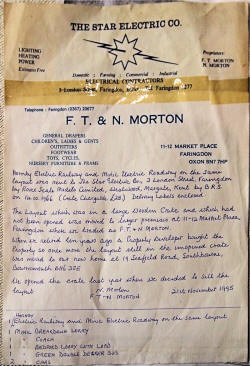 THE STAR ELECTRIC CO.
LIGHTING
HEATING
POWER
Estimates Free
Proprietors:
F. T. MORTON
N. MORTON
Domestic : Farming : Commercial : Industrial
ELECTRICAL CONTRACTORS
Faringdon,
Telephone : Faringdon (0367) 20677
F. T. & N. MORTON
GENERAL DRAPERS
CHILDREN'S, LADIES & GENTS
OUTFITTERS
FOOTWEAR
TOYS, CYCLES,
NURSERY FURNITURE & PRAMS
11-12 MARKET PLACE
FARINGDON
OXON SN7 7HP
Hornby Electric Railway and Minic Electric Roadway on the same
layout sent to The Star Electric Co., London Street, Faringdon
by Rovex Scale Models Limited, Westwood, Margate, Kent by B.R.S.
on 10.10.1966 (Crate Chargeable) Delivery Labels enclosed.
The Layout which was in a large Wooden Crate and which had
not been opened was moved to larger premises at 11-12 Market Place,
Faringdon when we traded as F.T & N Morton.
When we retired ten years ago a Property developer bought the
Property so once more the layout still in the unopened crate
was moved to our new home at 19 Seafield Road, Southbourne,
Bournemouth BH6
We opened the crate last year when we decided to sell the
layout.
N. Morton
F.T. Morton
21st November 1995
HORNBY
Electric Railway and Minic Electric Roadway on the same layout
1 MINIC BREAKDOWN LORRY
COACH
BEDFORD LORRY WITH LOAD
GREEN DOUBLE DECKER BUS
CARS